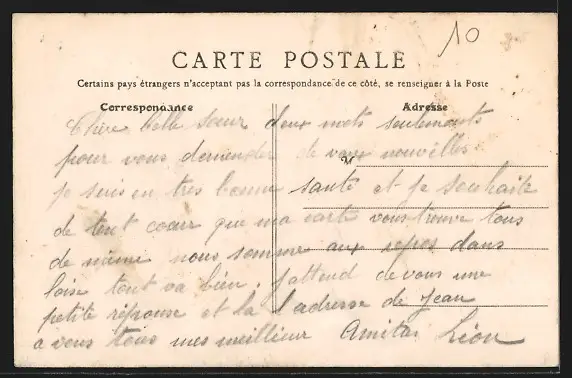 10
CARTE POSTALE
Certains pays étrangers n'acceptent pas la correspondance de ce côté, se renseigner à la Poste
Correspondance
Adresse
Chère belle sœur deux mots seulements
pour vous demender de vaux nouvelles
M
je suis en tres bonne santé et je souhaite
de tout cœur que ma carte vous trouve tous
de même nous somme aux repos dans
loise tout va bien. j'attend de vous une
petite réponse et la l'adresse de Jean
a vous tous mes meilleur Amitai Léon